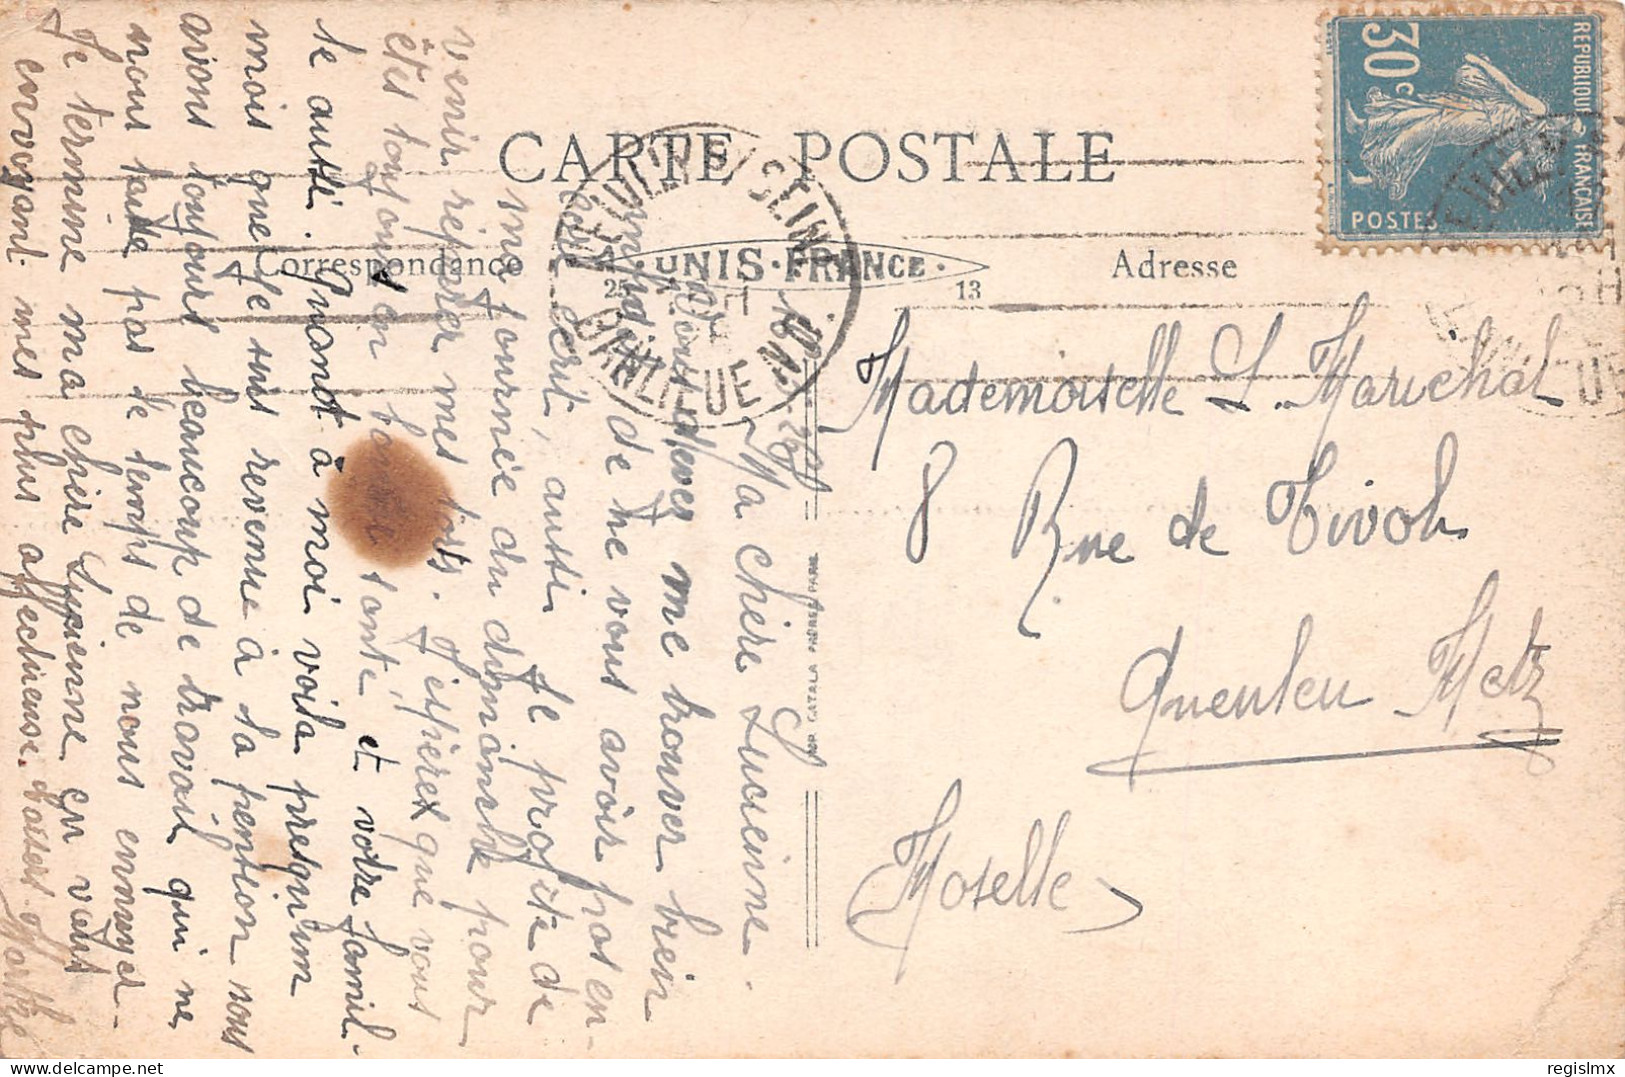 CARTE POSTALE
Correspondance
UNIS-FRANCE
Adresse
25
13
REPUBLIQUE FRANÇAISE
30c
POSTES
IMP CATALA FRERES PARIS
Ma chère Lucienne.
Vous devez me trouver bien
de ne vous avoir pas en-
core écrit, aussi je profite de
une journée du dimanche pour
venir réparer mes torts. J'espère que vous
êtes toujours en bonne santé et votre famil-
le aussi. Quant à moi voila presqu'un
mois que je suis revenue à la pention nous
avons toujours beaucoup de travail qui ne
nous laisse pas de temps de nous ennuyer
Je termine ma chère Lucienne en vous
envoyant mes plus affectueuse baisers Marthe
Mademoiselle L. Marichal
8 Rue de Tivoli
Queuleu Metz
Moselle
regislmx